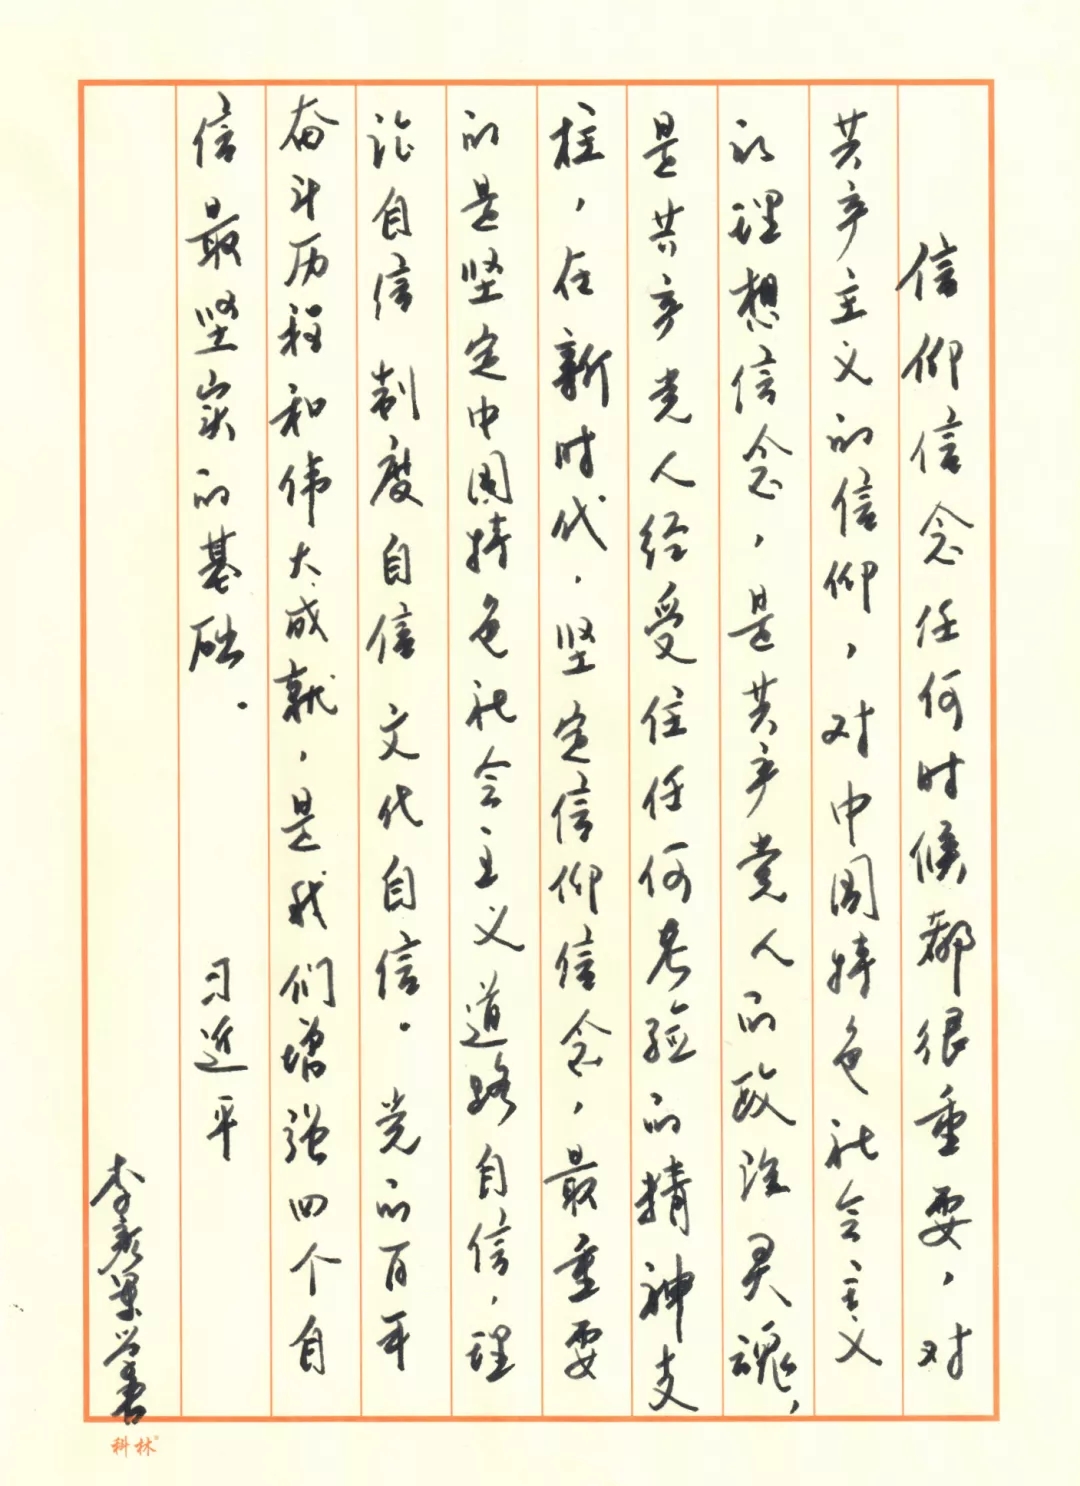 信仰信念任何时候都很重要，对
共产主义的信仰，对中国特色社会主义
的理想信念，是共产党人的政治灵魂，
是共产党人经受住任何考验的精神支
柱，在新时代，坚定信仰信念，最重要
的是坚定中国特色社会主义道路自信，理
论自信 制度自信 文化自信。党的百年
奋斗历程和伟大成就，是我们增强四个自
信最坚实的基础。 习近平
李彦
科林